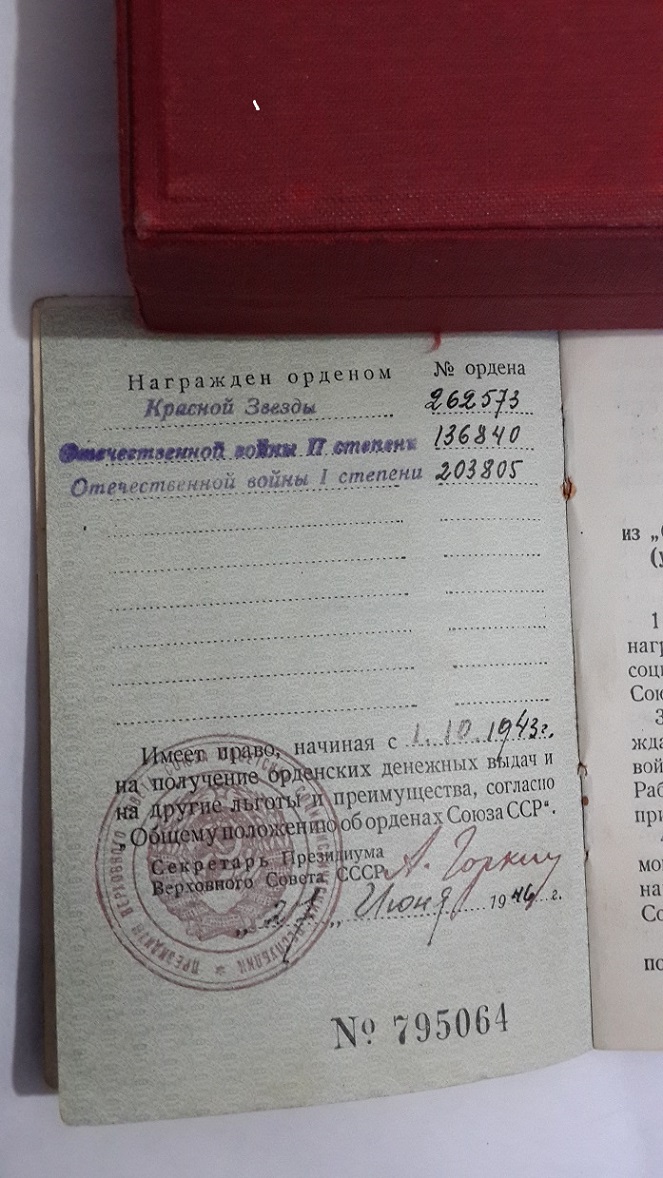 Награжден орденом № ордена
Красной Звезды 262573
Отечественной войны II степени 136840
Отечественной войны I степени 203805
Имеет право, начиная с 1. 10. 1943 г.
на получение орденских денежных выдач и
на другие льготы и преимущества, согласно
„Общему положению об орденах Союза ССР“.
Секретарь Президиума
Верховного Совета СССР А. Горкин
Июня 1946 г.
№ 795064
ПРЕЗИДИУМ ВЕРХОВНОГО
из „О
(у
1
нагр
соци
Сою
З
жда
вой
Раб
при
мог
на
Со
по